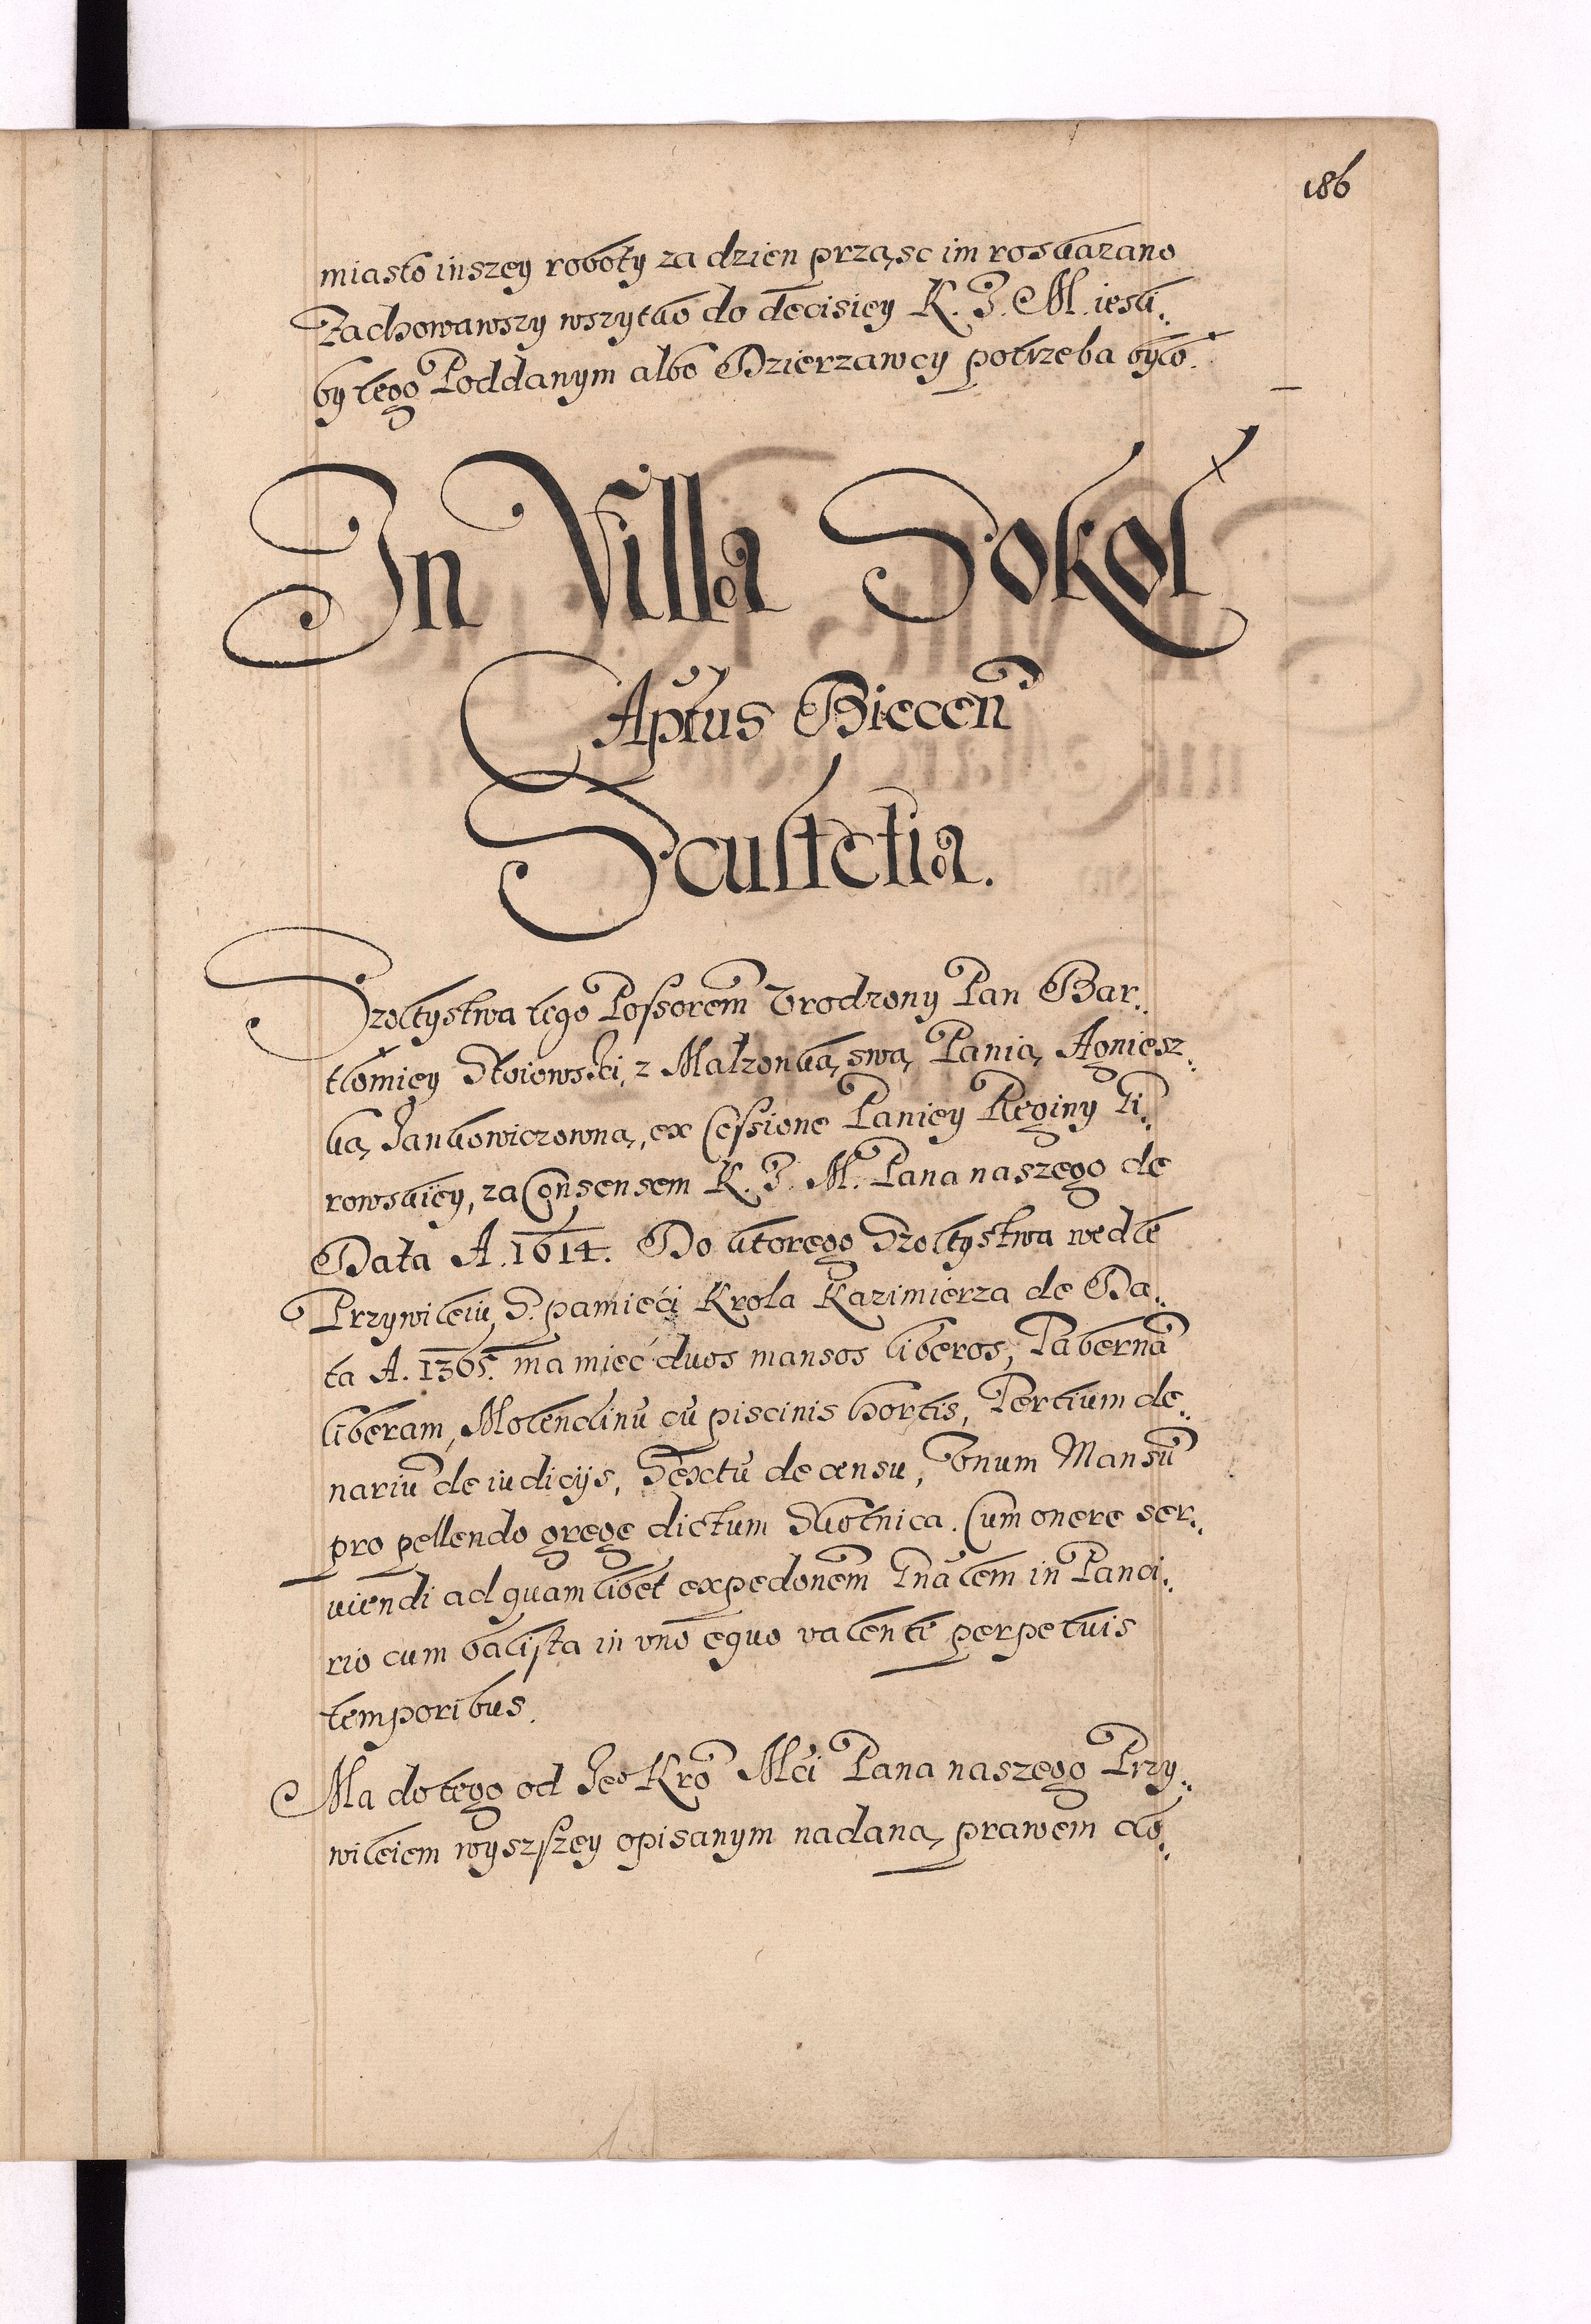 186
miasto inszey roboty za dzien prząsc im roskazano
Zachowawszy wszytko do decisiey K. J. M. iesli„
by tego Poddanym albo Dzierzawcy potrzeba było.
In Villa Sokoł
Aptus Biecen̄
Scultetia.
Szoltystwa tego Possorem̄ Vrodzony Pan Bar„
tłomiey Słoiowski, z Małzonką swą Panią Agniesz„
ką Jankowiczowną, ex Cessione Paniey Reginy Zi„
rowskiey, za Consensem K. J. M. Pana naszego de
Data A. 1614. Do ktorego Szoltystwa wedle
Przywileiu S. pamięći Krola Kazimierza de Da„
ta A. 1365. ma mieć duos mansos liberos, Tabernā
liberam, Molendinū cū piscinis hortis, Tertium de„
nariū de iudicijs, Sextū de censu, Vnum Mansū
pro pellendo grege dictum Skotnica. Cum onere ser„
uiendi ad quamlibet expedonem̄ gn̄alem in Panci„
rio cum balista in vno equo valenti perpetuis
temporibus.
Ma do tego od Jeo Kro Mći Pana naszego Przy„
wileiem wyszszey opisanym nadaną prawem do„